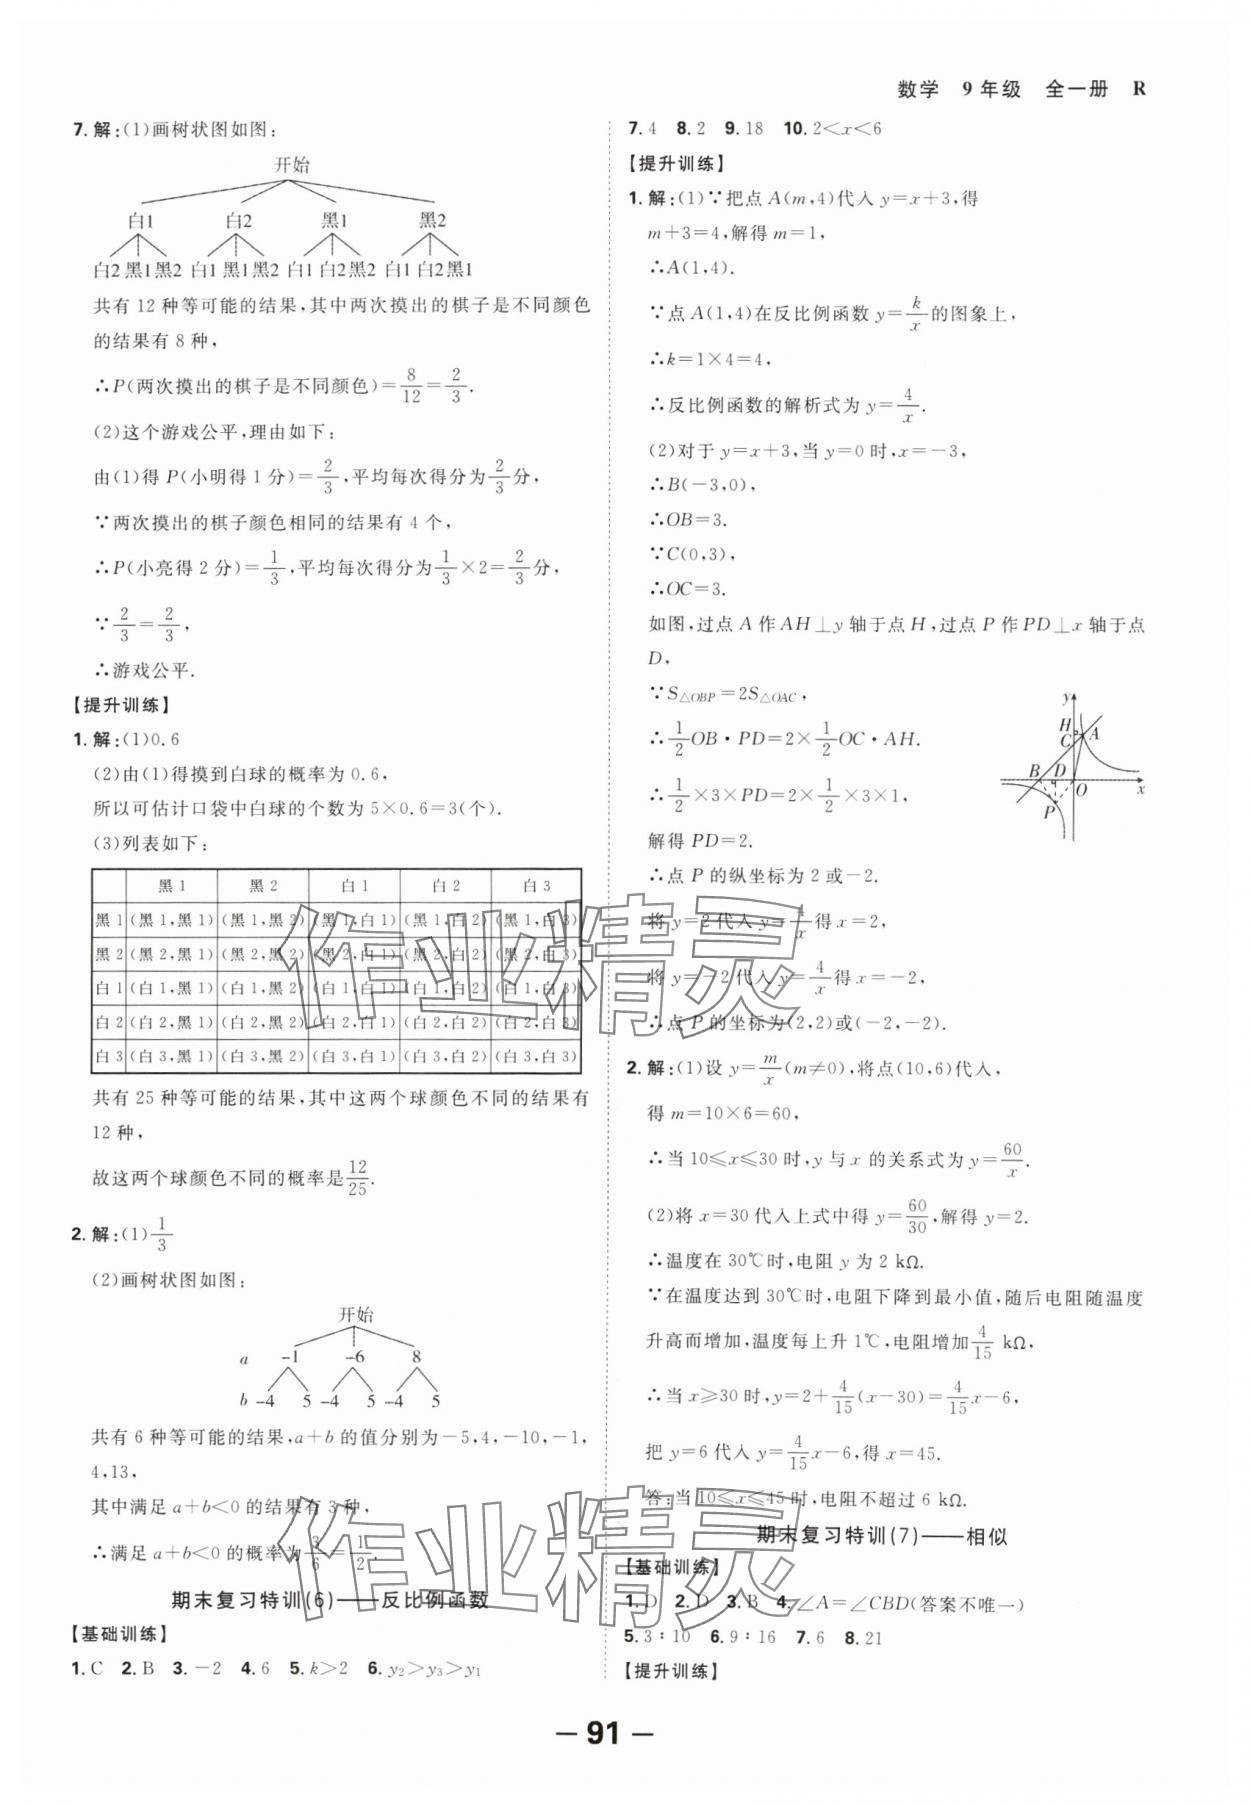 数学 9年级 全一册 R
7.解:(1)画树状图如图:
开始
白1 白2 黑1 黑2
白2 黑1黑2 白1 黑1黑2 白1 白2黑2 白1 白2黑1
共有12种等可能的结果,其中两次摸出的棋子是不同颜色
的结果有8种,
∴P(两次摸出的棋子是不同颜色)=8/12=2/3.
(2)这个游戏公平,理由如下:
由(1)得P(小明得1分)=2/3,平均每次得分为2/3分,
∵两次摸出的棋子颜色相同的结果有4个,
∴P(小亮得2分)=1/3,平均每次得分为1/3×2=2/3分,
∵2/3=2/3,
∴游戏公平.
【提升训练】
1.解:(1)0.6
(2)由(1)得摸到白球的概率为0.6,
所以可估计口袋中白球的个数为5×0.6=3(个).
(3)列表如下:
黑1 黑2 白1 白2 白3
黑1 (黑1,黑1) (黑1,黑2) (黑1,白1) (黑1,白2) (黑1,白3)
黑2 (黑2,黑1) (黑2,黑2) (黑2,白1) (黑2,白2) (黑2,白3)
白1 (白1,黑1) (白1,黑2) (白1,白1) (白1,白2) (白1,白3)
白2 (白2,黑1) (白2,黑2) (白2,白1) (白2,白2) (白2,白3)
白3 (白3,黑1) (白3,黑2) (白3,白1) (白3,白2) (白3,白3)
共有25种等可能的结果,其中这两个球颜色不同的结果有
12种,
故这两个球颜色不同的概率是12/25.
2.解:(1)1/3
(2)画树状图如图:
开始
a -1 -6 8
b -4 5 -4 5 -4 5
共有6种等可能的结果,a+b的值分别为-5,4,-10,-1,
4,13,
其中满足a+b<0的结果有3种,
∴满足a+b<0的概率为3/6=1/2.
期末复习特训(6)——反比例函数
【基础训练】
1.C 2.B 3.-2 4.6 5.k>2 6.y₂>y₃>y₁
7.4 8.2 9.18 10.2<x<6
【提升训练】
1.解:(1)∵把点A(m,4)代入y=x+3,得
m+3=4,解得m=1,
∴A(1,4).
∵点A(1,4)在反比例函数y=k/x的图象上,
∴k=1×4=4,
∴反比例函数的解析式为y=4/x.
(2)对于y=x+3,当y=0时,x=-3,
∴B(-3,0),
∴OB=3.
∵C(0,3),
∴OC=3.
如图,过点A作AH⊥y轴于点H,过点P作PD⊥x轴于点
D,
∵S△OBP=2S△OAC,
∴1/2OB·PD=2×1/2OC·AH.
∴1/2×3×PD=2×1/2×3×1,
解得PD=2.
y
H
C A
B D
O x
P
∴点P的纵坐标为2或-2.
将y=2代入y=4/x得x=2,
将y=-2代入y=4/x得x=-2,
∴点P的坐标为(2,2)或(-2,-2).
2.解:(1)设y=m/x(m≠0),将点(10,6)代入,
得m=10×6=60,
∴当10≤x≤30时,y与x的关系式为y=60/x.
(2)将x=30代入上式中得y=60/30,解得y=2.
∴温度在30℃时,电阻y为2 kΩ.
∵在温度达到30℃时,电阻下降到最小值,随后电阻随温度
升高而增加,温度每上升1℃,电阻增加4/15 kΩ,
∴当x≥30时,y=2+4/15(x-30)=4/15x-6,
把y=6代入y=4/15x-6,得x=45.
答:当10≤x≤45时,电阻不超过6 kΩ.
期末复习特训(7)——相似
【基础训练】
1.D 2.D 3.B 4.∠A=∠CBD(答案不唯一)
5.3:10 6.9:16 7.6 8.21
【提升训练】
作业精灵
作业精灵
— 91 —